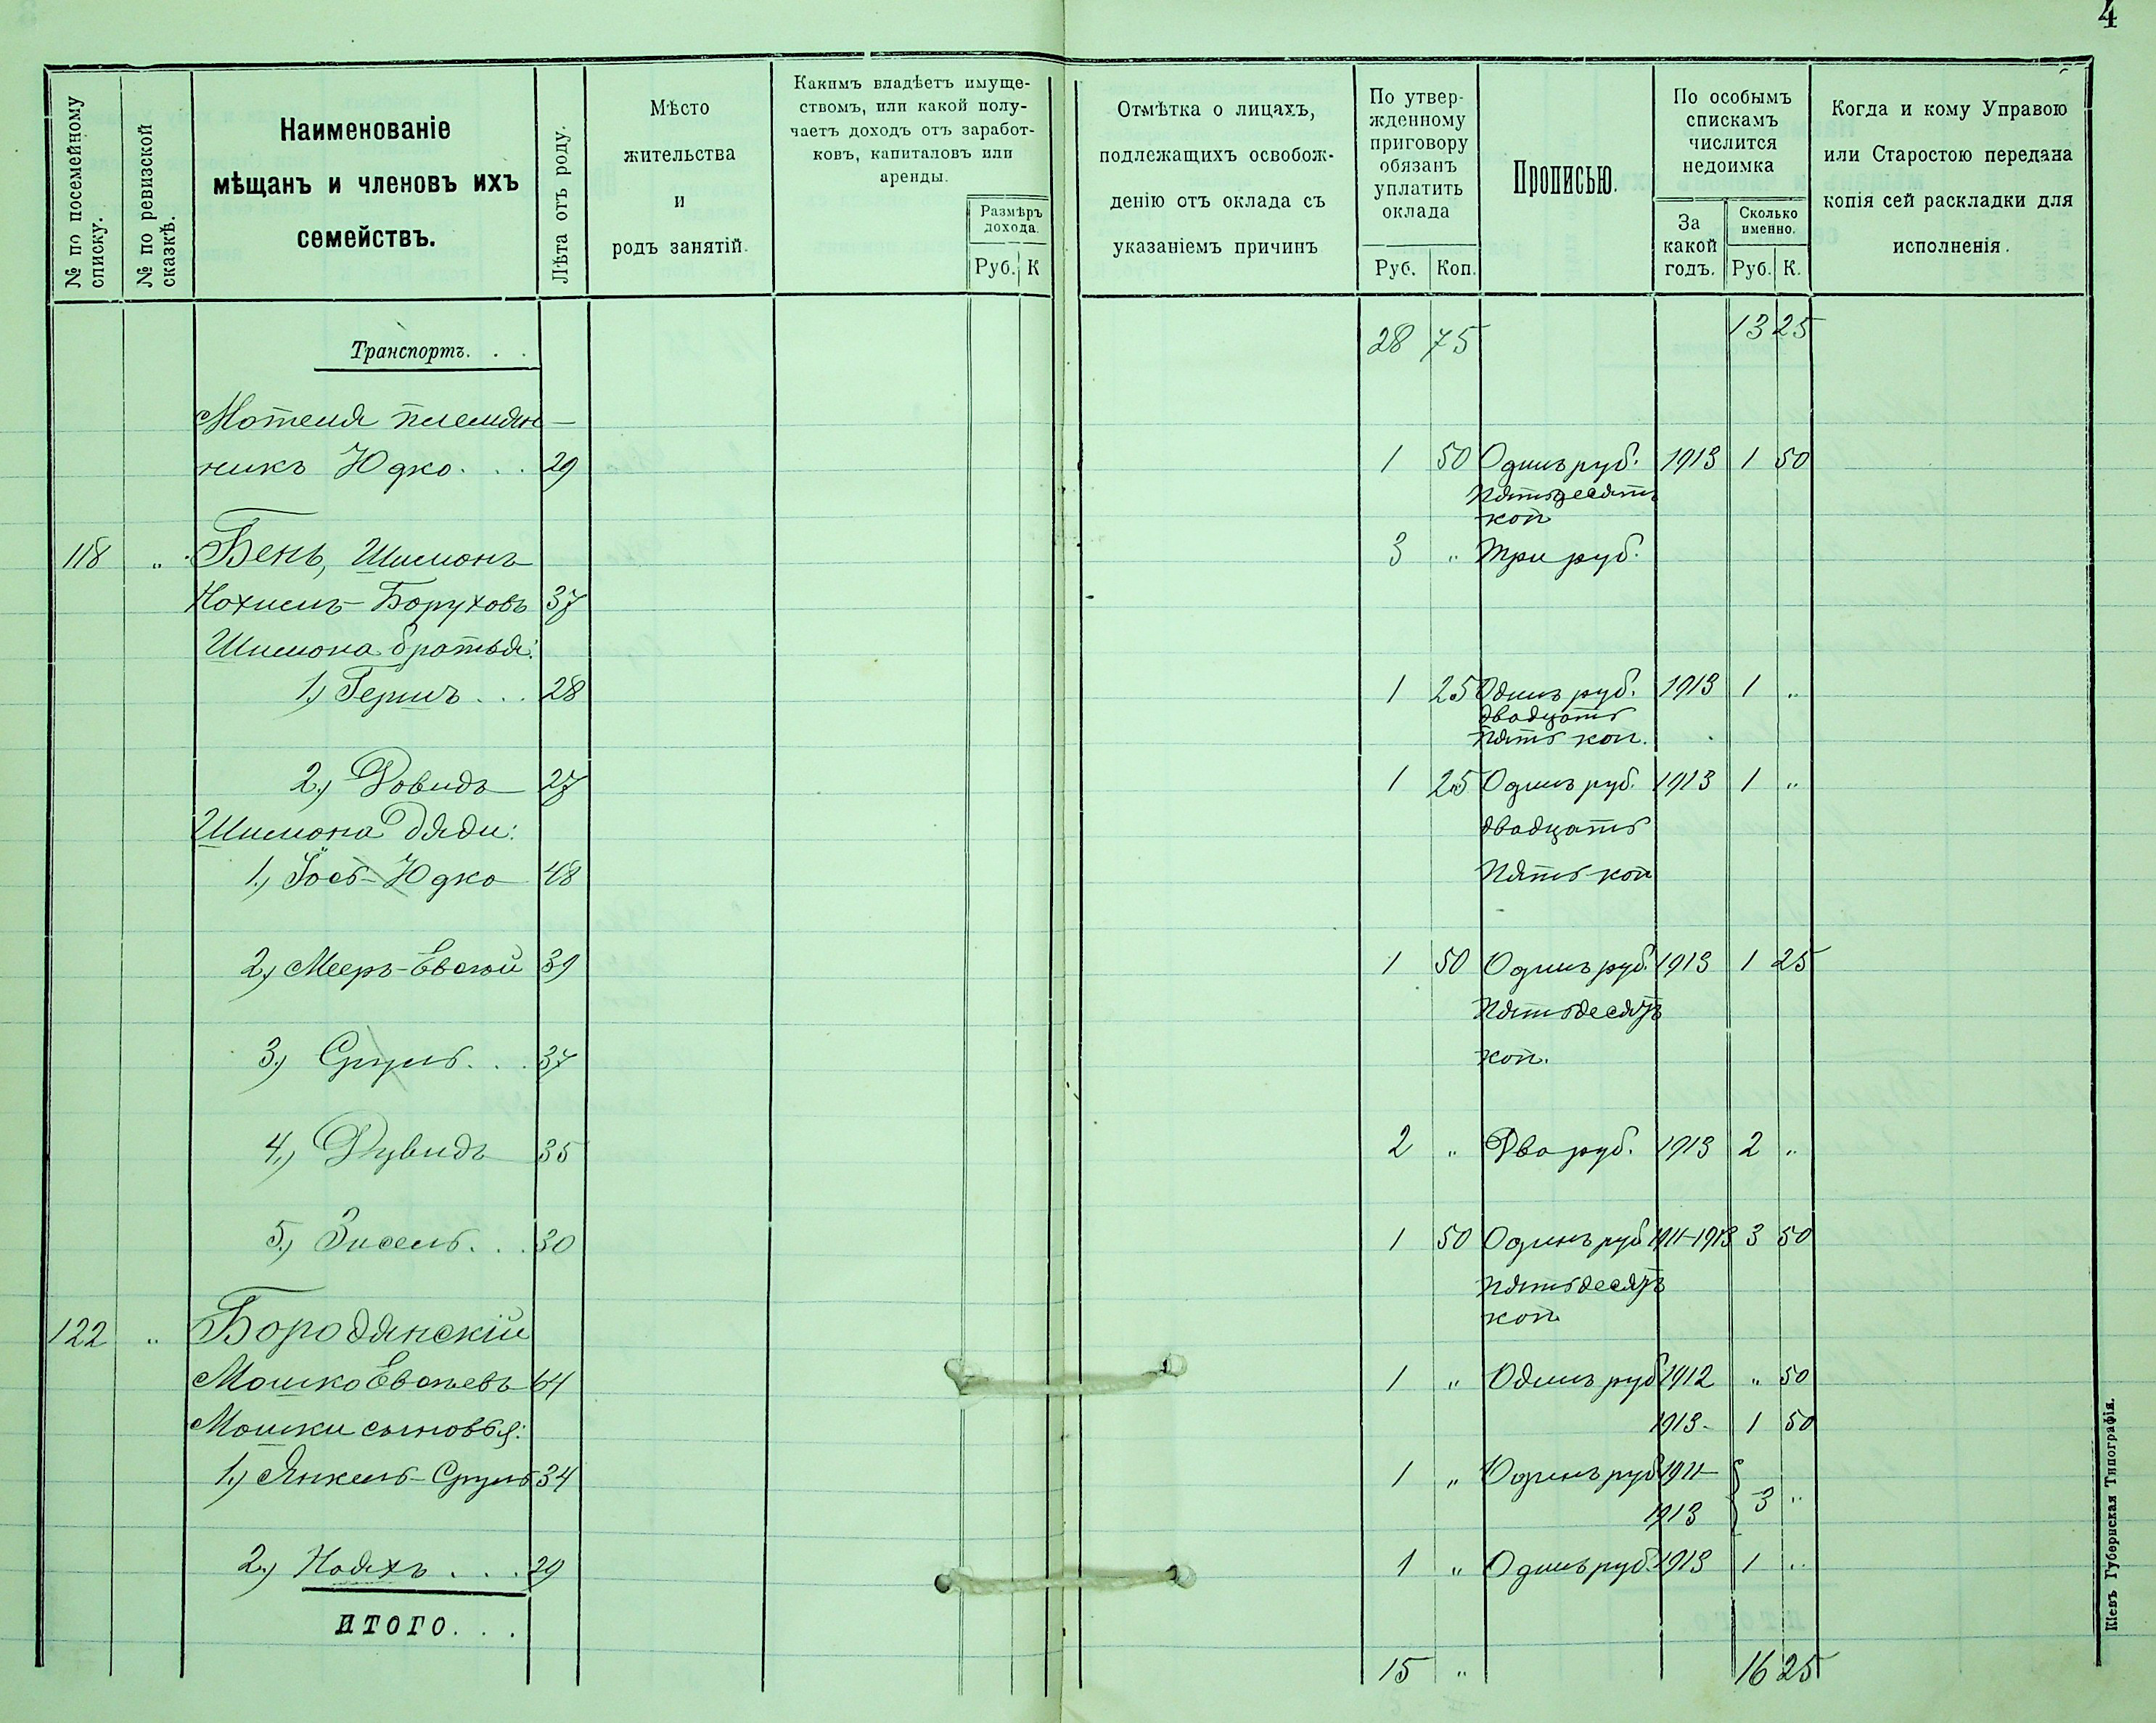 4
№ по посемейному списку.
№ по ревизской сказкѣ.
Наименованіе
мѣщанъ и членовъ ихъ
семействъ.
Лѣта отъ роду.
Мѣсто
жительства
и
родъ занятій.
Какимъ владѣетъ имуще-
ствомъ, или какой полу-
чаетъ доходъ отъ заработ-
ковъ, капиталовъ или
аренды.
Размѣръ
дохода.
Руб. К
Отмѣтка о лицахъ,
подлежащихъ освобож-
денію отъ оклада съ
указаніемъ причинъ
По утвер-
жденному
приговору
обязанъ
уплатить
оклада
Руб. Коп.
Прописью.
По особымъ
спискамъ
числится
недоимка
За
какой
годъ.
Сколько
именно.
Руб. К.
Когда и кому Управою
или Старостою передана
копія сей раскладки для
исполненія.
Транспортъ. . . 28 75 13 25
Мотеля племян-
никъ Юдко . . . 29 1 50 Одинъ руб. 1913 1 50
пятьдесятъ
коп
118 " Бень, Шимонъ 3 " Три руб.
Нохимъ-Боруховъ 37
Шимона братья:
1.) Гершъ . . . 28 1 25 Одинъ руб. 1913 1 "
двадцать
пять коп.
2.) Довидъ 27 1 25 Одинъ руб. 1913 1 "
Шимона дяди: двадцать
1.) Іось-Юдко 48 пять коп
2.) Мееръ-Евсей 39 1 50 Одинъ руб. 1913 1 25
пятьдесятъ
3.) Сруль . . . 37 коп.
4.) Дувидъ 35 2 " Два руб. 1913 2 "
5.) Зисель . . . 30 1 50 Одинъ руб 1911-1913 3 50
пятьдесятъ
122 " Бородянскій коп
Мошко Евсеевъ 64 1 " Одинъ руб 1912 " 50
Мошки сыновья: 1913- 1 50
1.) Янкель-Сруль 34 1 " Одинъ руб 1911-
1913 3 "
2.) Нояхъ . . . . 29 1 " Одинъ руб. 1913 1 "
ИТОГО. . .
15 " 16 25
Кіевъ Губернская Типографія.